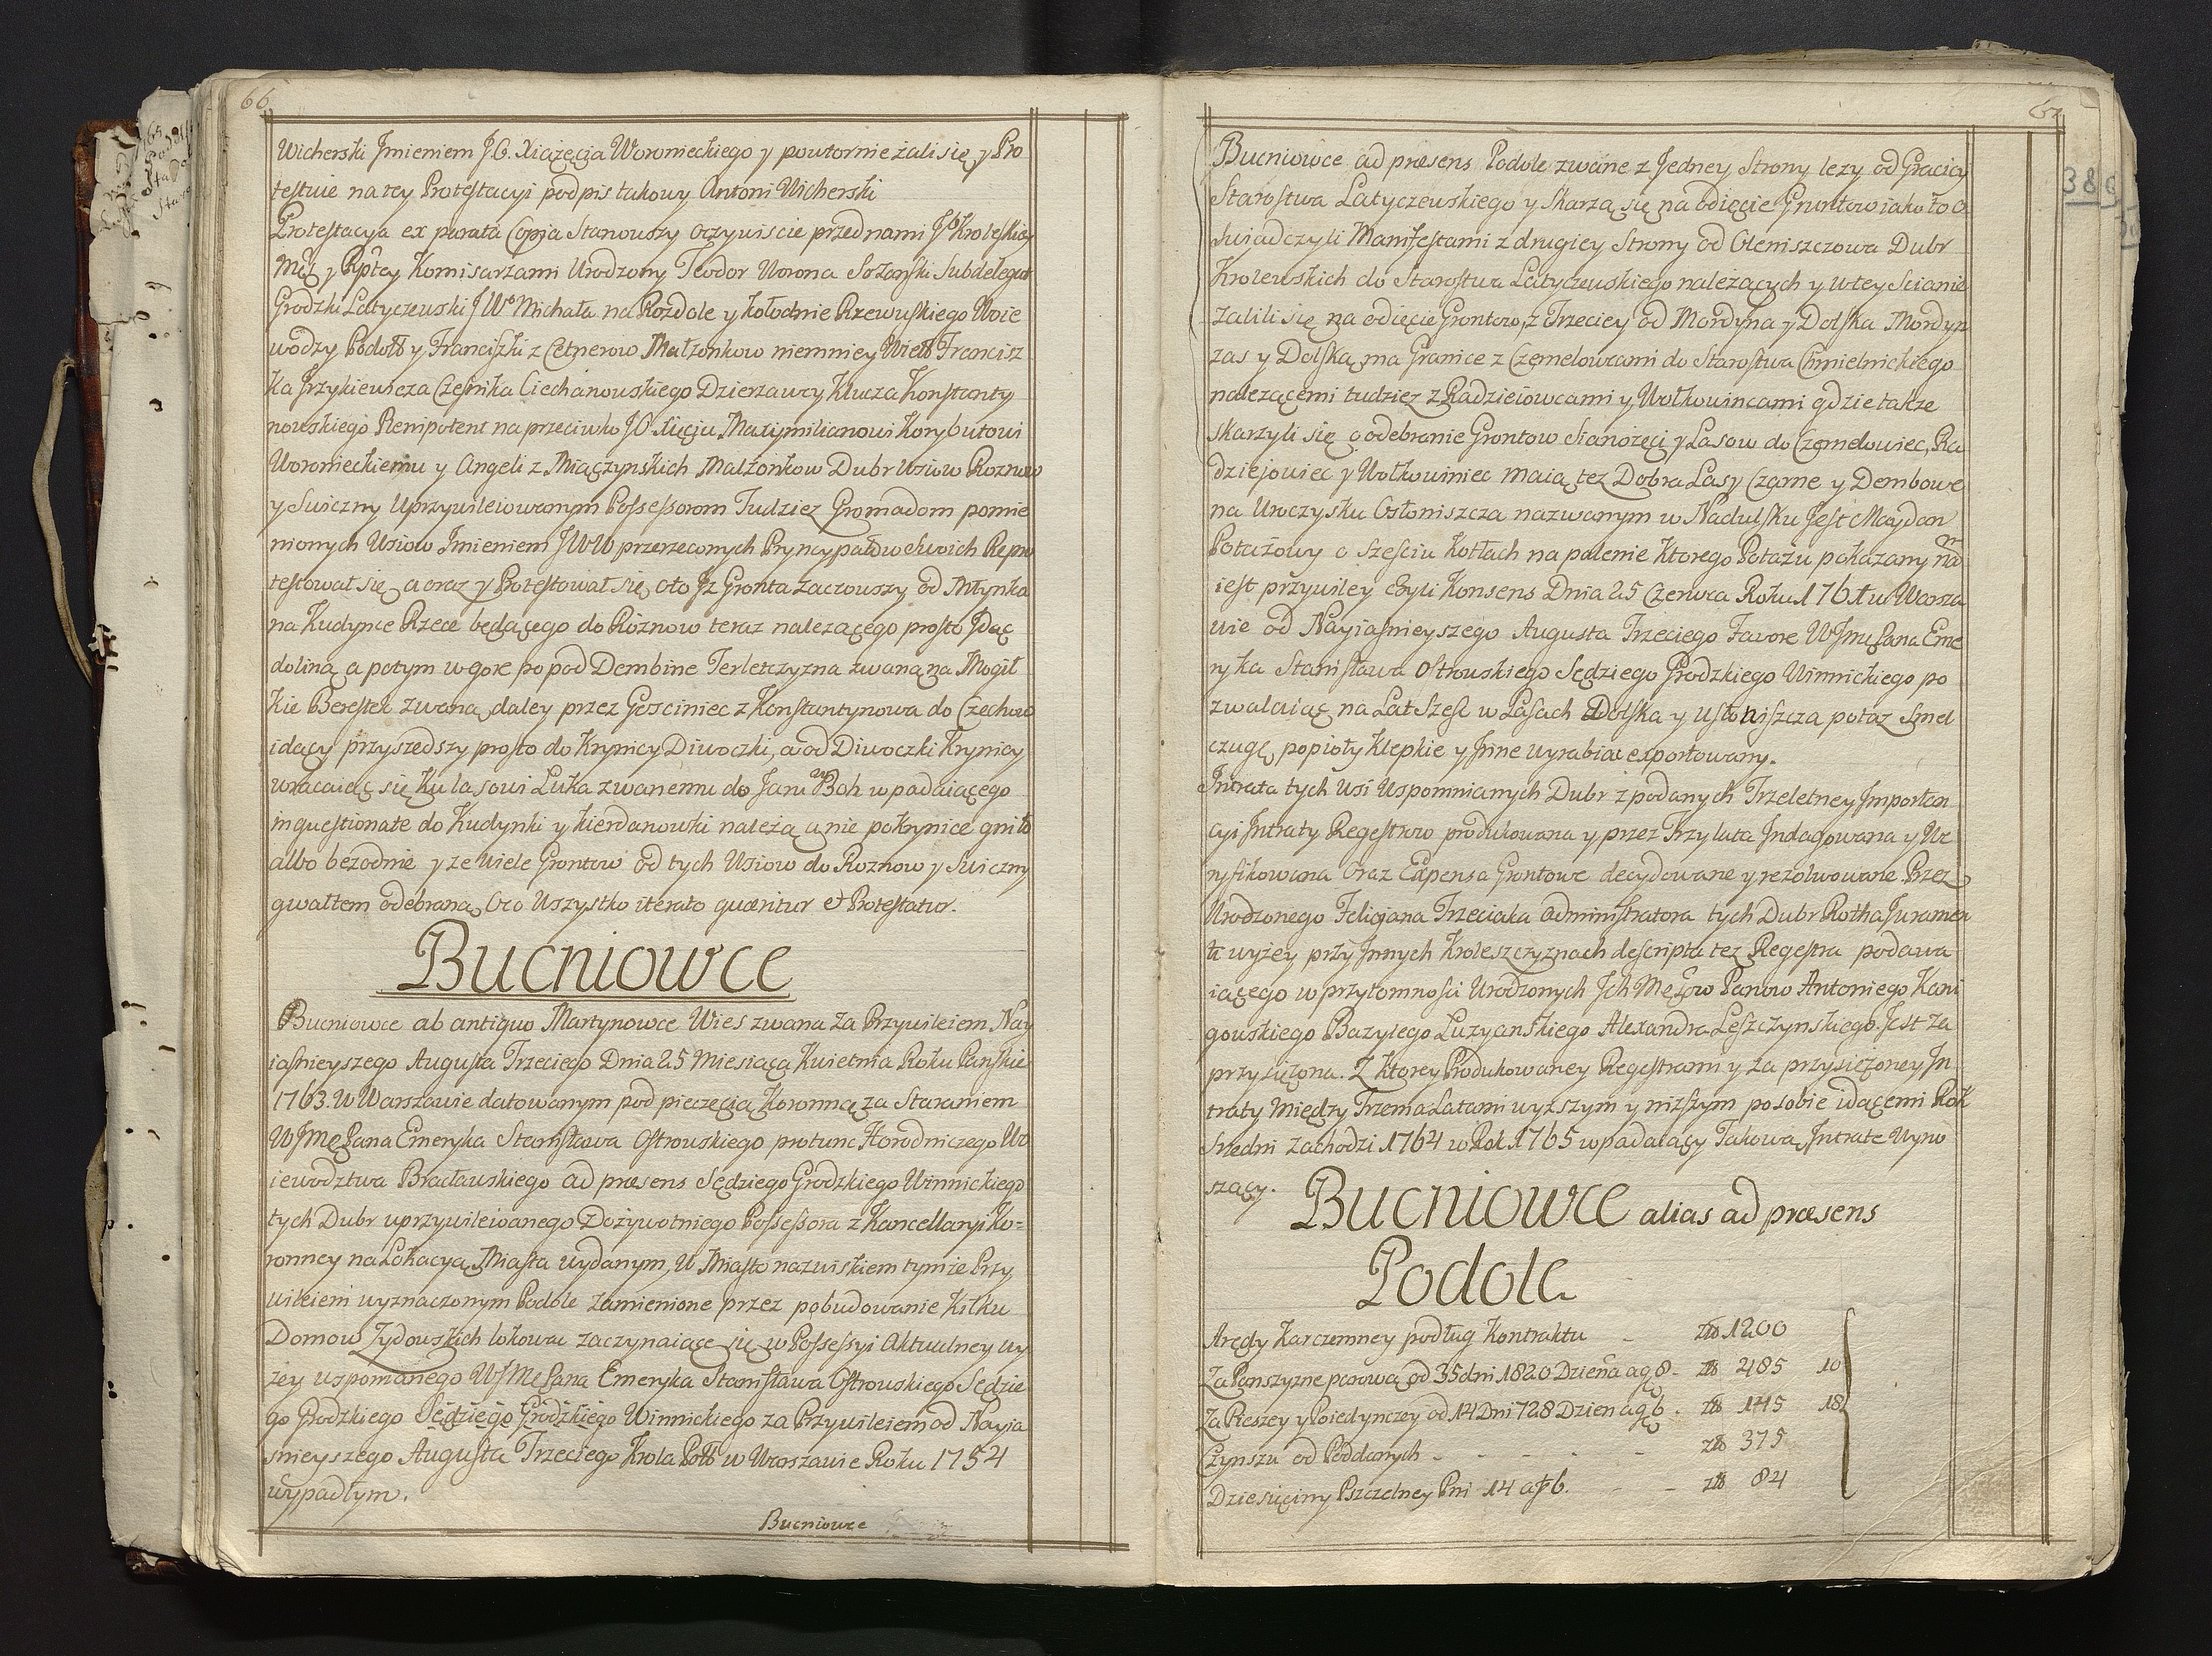 66
Wicherski Jmieniem J.O. Xiążęcia Woronieckiego y powtornie żali się y Pro
testuie na tey Protestacyi podpis takowy Antoni Wicherski
Protestacya ex parata Copia Stanowszy oczywiscie przed nami JKrolewskiey
Mci y Rpltey Komisarzami Urodzony Teodor Worona Subdelegat
Grodzki Latyczewski JW Michała na Rozdole y Kołodnie Rzewuskiego Woie
wodzy Podoll y Franciszki z Cetnerow Małżonkow niemniey Wiell Francisz
ka Grzykiewicza Czesnika Ciechanowskiego Dzierzawcy Klucza Konstanty
nowskiego Plenipotent na przeciwko JO Xięciu Maxymilianowi Korybutowi
Woronieckiemu y Angeli z Miączynskich Malżonkow Dubr Wsiow Roznow
y Swiczny Uprzywileiowanym Possessorom Tudziez Gromadom pomie
nionych Wsiow Jmieniem JWW przerzeconych Pryncypałow Swoich Repro
testował się a oraz y Protestował się oto Jz Gronta zacząwszy od Młynka
na Kudynce Rzece będącego do Roznow teraz nalezącego prosto Jdąc
doliną a potym w gore po pod Dembine Terletczyzna zwaną na Mogił
kie Berestek zwaną daley przez Gosciniec z Konstantynowa do Czechow
idący przyszedszy prosto do Krynicy Diwoczki, a od Diwoczki Krynicy
wracaiąc się Ku lasowi Luka zwanemu do Jaru w Boh wpadaiącego
in questionate do Kudynki y Kierdanowki należą a nie po Krynice gniło
albo bezodnie y ze wiele Grontow od tych Wsiow do Roznow y Swiczny
gwałtem odebrano, Oco Wszystko iterato quæritur et Protestatur.
Bucniowce
Bucniowce ab antiquo Martynowce Wies zwana za Przywileiem Nay
iasnieyszego Augusta Trzeciego Dnia 25 Miesiąca Kwietnia Roku Panskie
1763. W Warszawie datowanym pod pieczęcią Koronną za Staraniem
WJMę Pana Emeryka Stanisława Ostrowskiego protunc Horodniczego Wo
iewodztwa Bracławskiego ad præsens Sędziego Grodzkiego Winnickiego
tych Dubr uprzywileiowanego Dożywotniego Possessora z Kancellaryi Ko=
ronney na Lokacyą Miasta wydanym, W Miasto nazwiskiem tymże Przy
wileiem wyznaczonym Podole zamienione przez pobudowanie Kilku
Domow Zydowskich lokowac zaczynaiące się w Possessyi Aktualney wy
żey uspomanego WJMę Pana Emeryka Stanisława Ostrowskiego Sędzie
go Grodzkiego Sędziego Grodzkiego Winnickiego za Przywileiem od Nayia
snieyszego Augusta Trzeciego Krola Poll w Warszawie Roku 1754
wypadłym.
Bucniowce
67
Bucniowce ad præsens Podole zwane z Jedney Strony lezy od Gracicy
Starostwa Latyczewskiego y Skarzą się na odięcie Gruntow iako to o
swiadczyli Manifestami z drugiey Strony od Oleniszczowa Dubr
Krolewskich do Starostwa Latyczewskiego należących y wtey Scianie
żalili się na odięcie Grontow, z Trzeciey od Mordyna y Dolska Mordyn
zas y Dolska ma Granice z Czemelowcami do Starostwa Chmielnickiego
nalezącemi tudziez z Radzieiowcami y Wołkowincami gdzie takze
skarzyli się o odebranie Grontow Sianożęci y Lasow do Czemelowiec, Ra
dziejowiec y Wołkowiniec maią tez Dobra Lasy Czarne y Dembowe
na Uroczysku Osłoniszcza nazwanym w Nadulsku Jest Maydan
Potażowy o Szesciu Kotłach na palenie Ktorego Potażu pokazany nam
iest przywiley czyli Konsens Dnia 25 Czerwca Roku 1761 w Warsza
wie od Nayiasnieyszego Augusta Trzeciego Favore WJmę Pana Eme
ryka Stanisława Ostrowskiego Sędziego Grodzkiego Winnickiego po
zwalaiąc na Lat Szesc w Lasach Dolska y Usłoniszcza potaz Smel
czugę, popioły Klepkie y Jnne wyrabiac exportowany.
Jntrata tych Wsi Wspomnianych Dubr z podanych Trzeletney Jmportan
cyi Jntraty Regestrow produkowana y przez Trzy lata Jndagowana y We
ryfikowana oraz Expensa Grontowe decydowane y rezolwowane Przez
Urodzonego Felicjana Trzeciaka Administratora tych Dubr Rotha Juramen
ti wyżey przy Jnnych Kroleszczyznach descripta tez Regestra podawa
iącego w przytomnosci Urodzonych Jch Męzow Panow Antoniego Kani
gowskiego Bazylego Luzyanskiego Alexandra Leszczynskiego. Jest za
przysiężona. Z Ktorey Produkowaney Regestrami y za przysiężoney Jn
traty Między Trzema Latami wyzszym y nizszym po sobie idącemi Rok
Sredni zachodzi 1764 w Rok 1765 wpadaiący Takową Jntrate Wyno
szący.
Bucniowce alias ad præsens
Podole
Arędy Karczemney podług Kontraktu - zło 1200
Za Panszyzne parową od 35 dni 1820 Dzien a gę 8 - zło 485 10
Za Pieszey y Poiedynczey od 14 Dni 728 Dzien a gę 6. zło 145 18
Czynszu od Poddanych - - - - - zło 375
Dziesięciny Pszczelney Pni 14 a f 6. - - zło 84